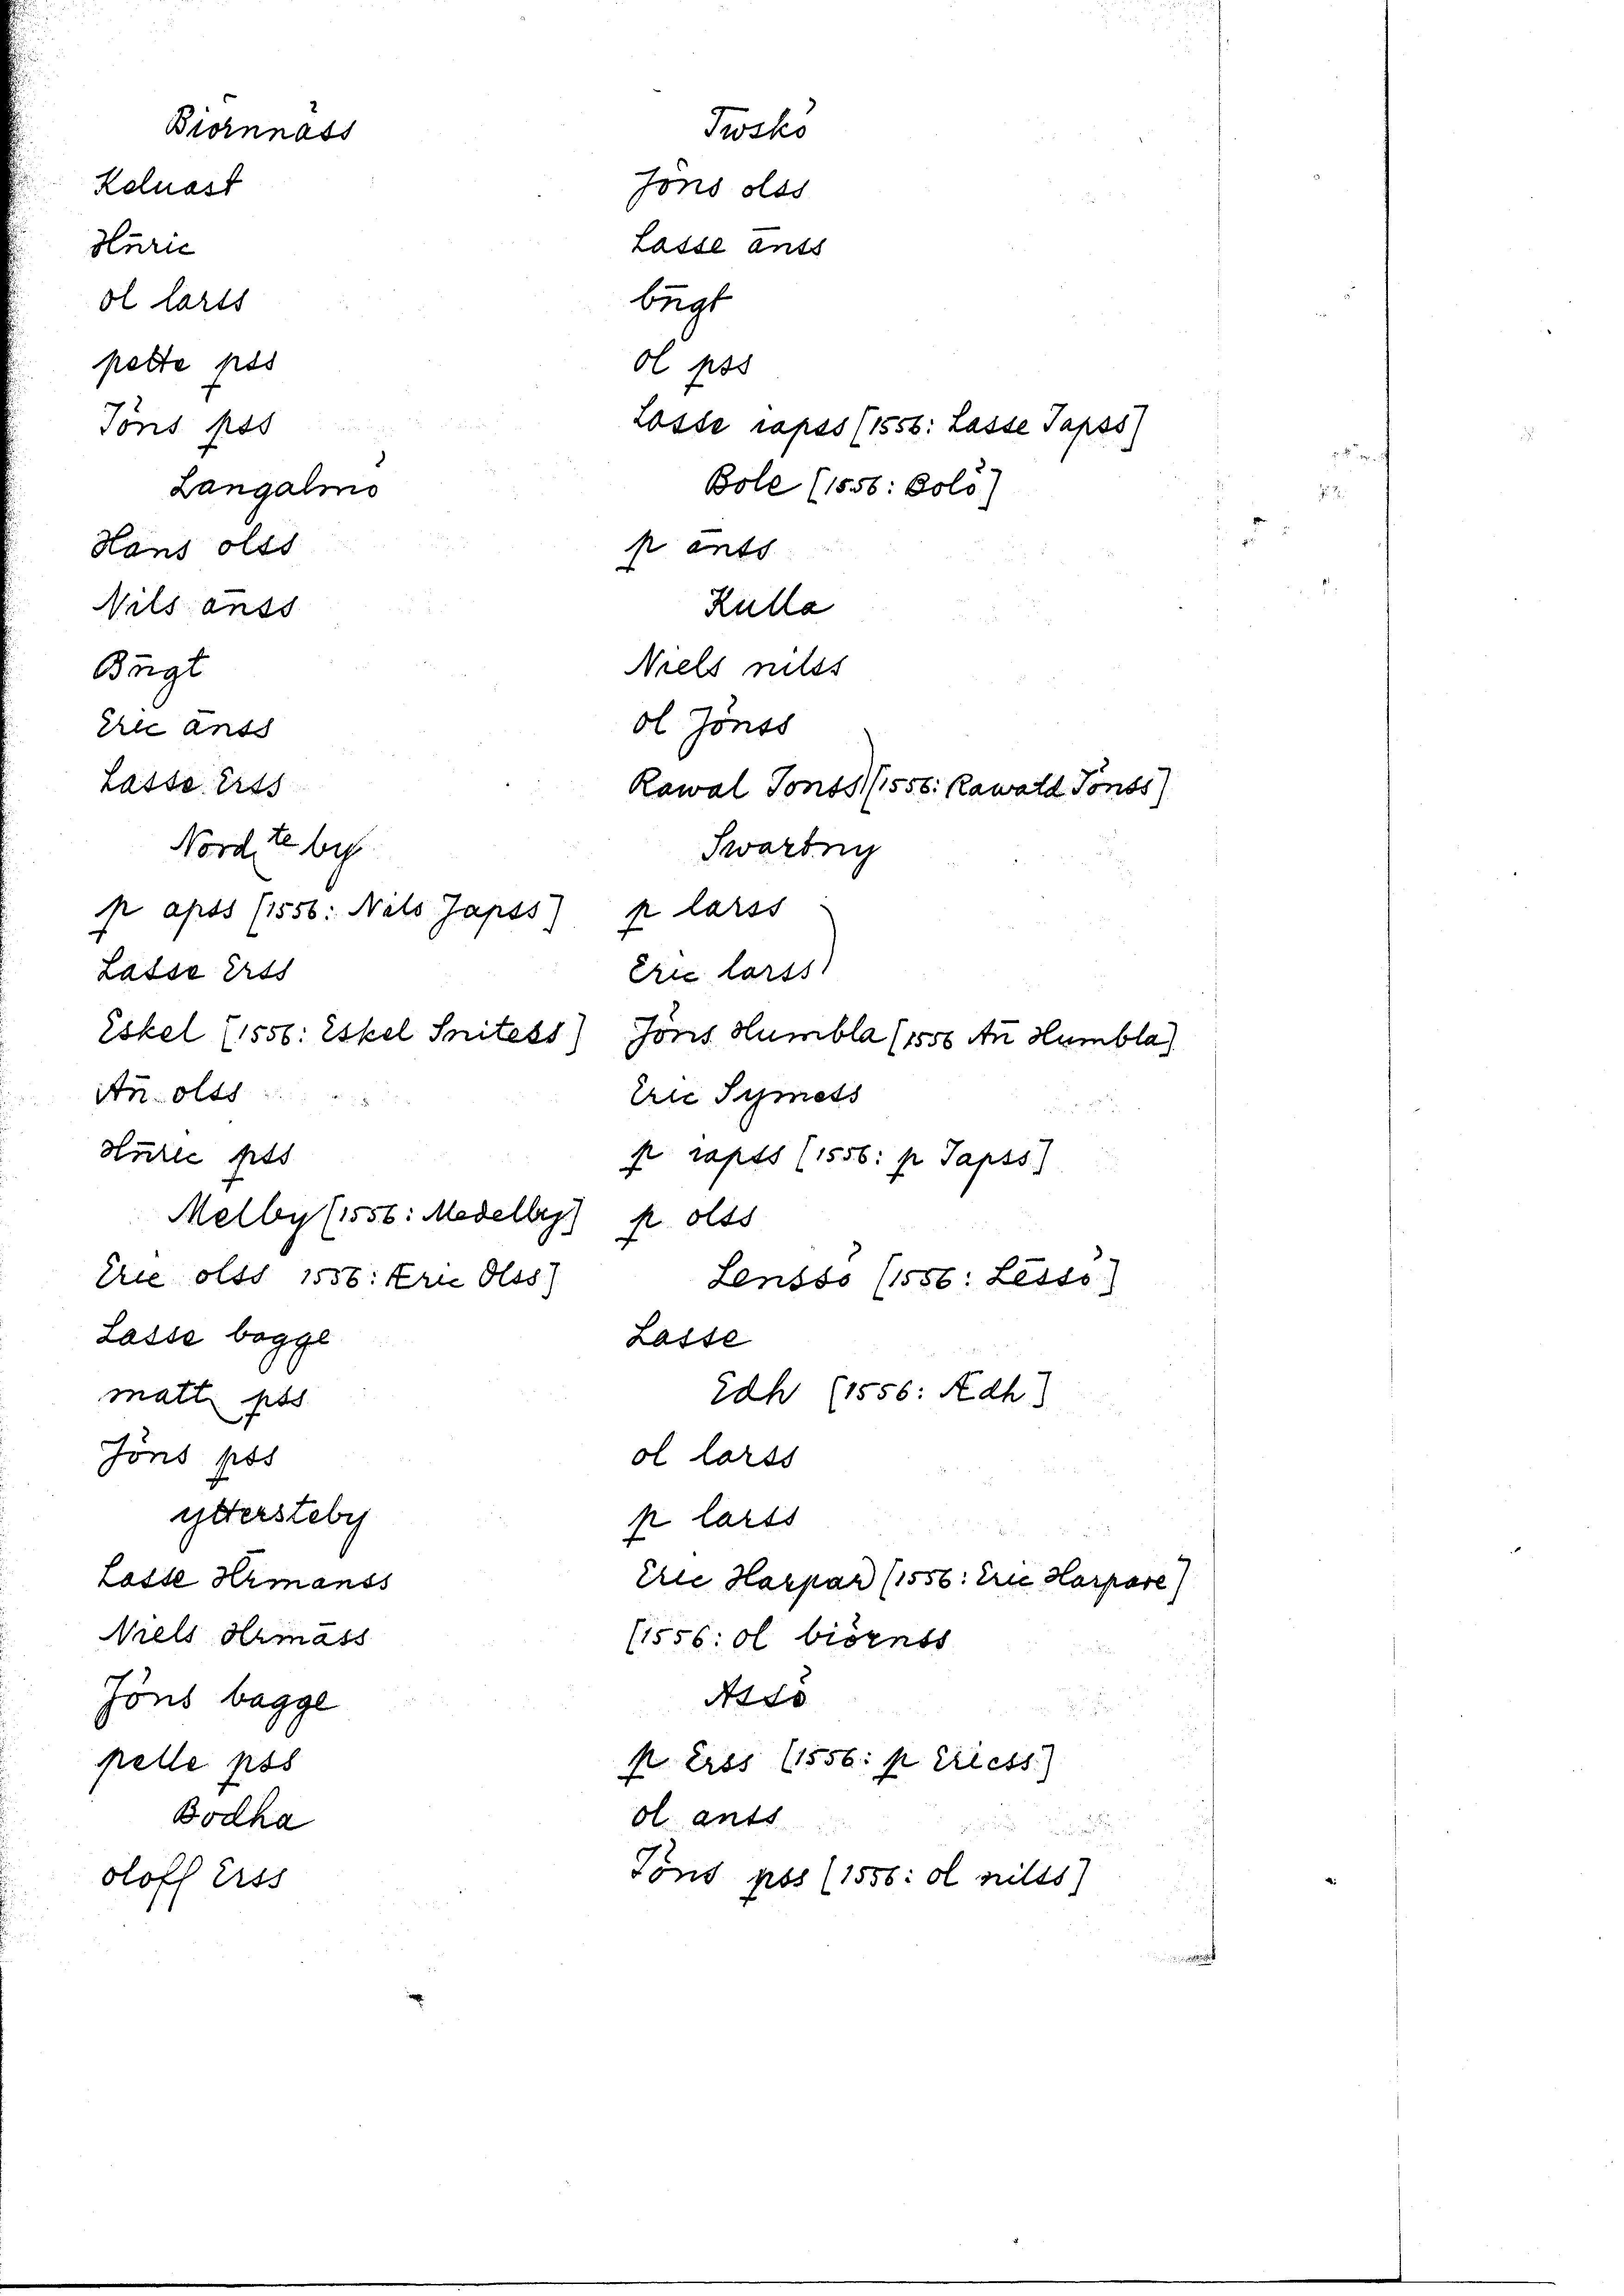 Biörnnäss
Keluast
Hn̄ric
ol larss
pelle pss
Jöns pss
Langalmö
Hans olss
Nils an̄ss
Bn̄gt
Eric ānss
Lasse Erss
Nordste by
p apss (1556: Nils Japss)
Lasse Erss
Eskel (1556: Eskel Snitess)
An̄ olss
Hn̄ric pss
Melby (1556: Medelby)
Eric olss 1556: Eric Olss)
Lasse bagge
matt pss
Jöns pss
yttersteby
Lasse Hermanss
Niels Hermāss
Jöns bagge
pelle pss
Bodha
oloff Erss
Twskö
Jöns olss
Lasse ānss
bn̄gt
ol pss
Lasse iapss (1556: Lasse Japss)
Bole (1556: Bolö)
p ānss
Kulla
Niels nilss
ol Jönss
Rawal Jonss (1556: Rawald Jönss)
Swartny
p larss
Eric larss
Jöns Humbla (1556 An̄ Humbla)
Eric Symess
p iapss (1556: p Japss)
p olss
Lenssö (1556: Lēssö)
Lasse
Edh (1556: Ædh)
ol larss
p larss
Eric Harpar (1556: Eric Harpare)
(1556: ol biörnss
Assö
p Erss (1556: p Ericss)
ol anss
Jöns pss (1556: ol nilss)